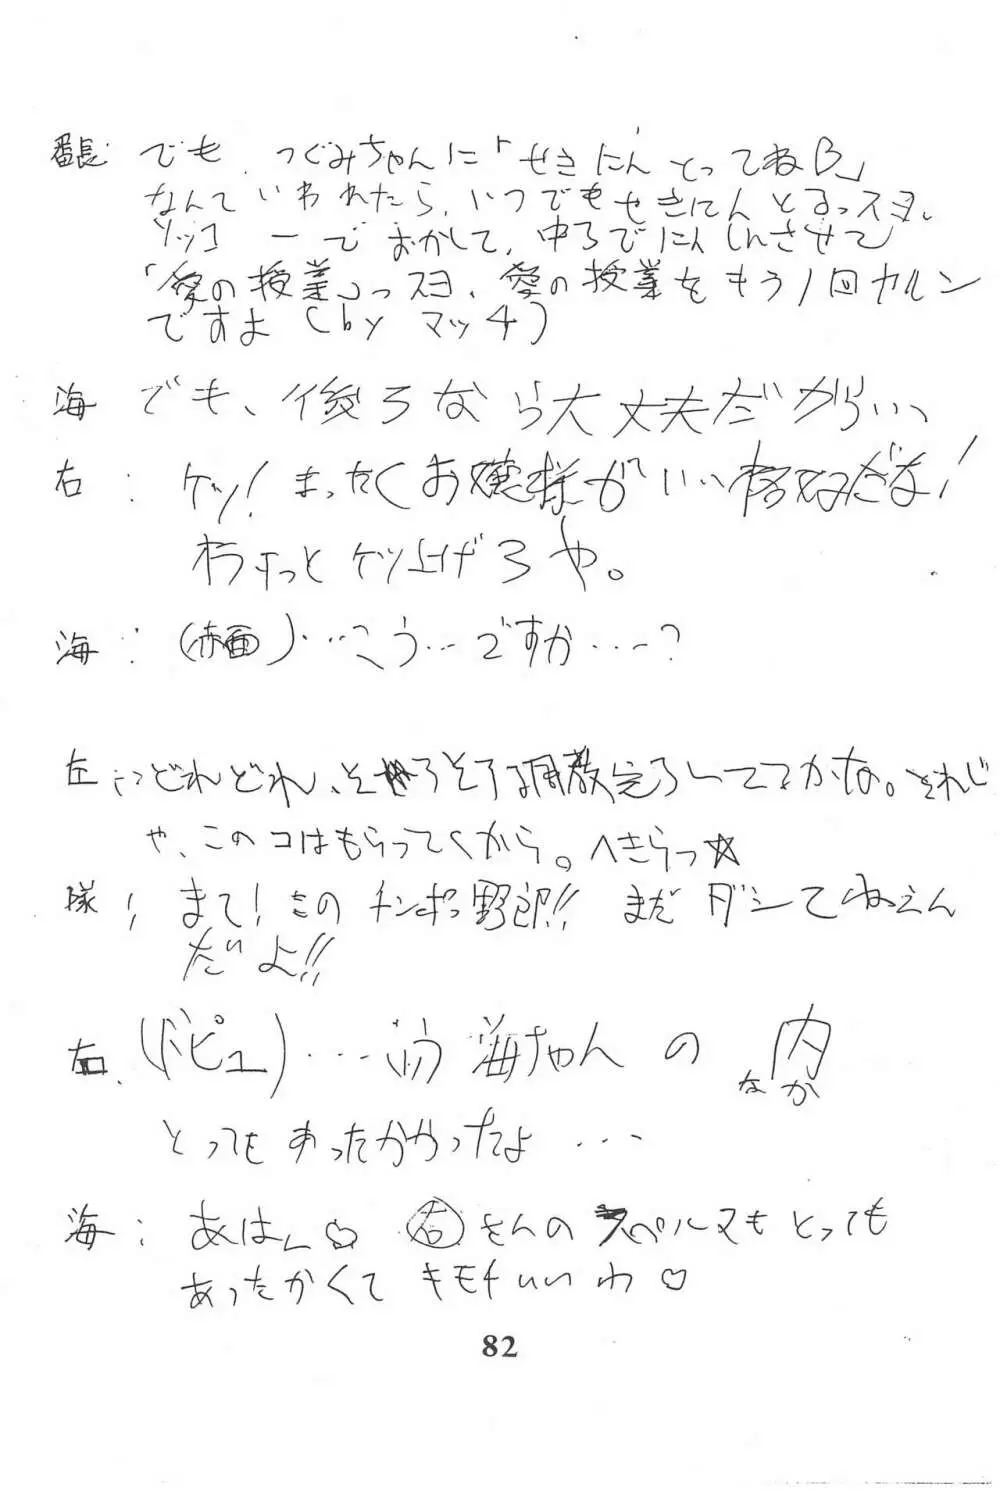 番長: でも、つぐみちゃんに「せきにんとってねB」
なんていわれたら、いつでもせきにんとるっスヨ。
ソッコーでおかして、中ろでにんしんさせて
「愛の授業」っスヨ、愛の授業をもう1回ヤルン
ですよ(by マッチ)
海 でも、後ろなら大丈夫だからいい
右: ケッ!まったくお嬢様がいい格好だな!
もっとケツ上げろや。
海: (赤面)…こう…ですか…?
左: どれどれ、そろそろ調教完了してるかな。それじ
や、このコはもらってくから。へきらっ☆
隊! まて!このチンポ野郎!! まだダシてねえん
だよ!!
右: (ドピュ)…海ちゃんの内
なか
とってもあったかかったよ…
海: あはん♡ 右さんのスペルマもとっても
あったかくてキモチいいわ♡
82